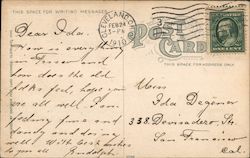 THIS SPACE FOR WRITING MESSAGES
POST CARD
THIS SPACE FOR ADDRESS ONLY
CLEVELAND
FEB 24
3-PM
1910
ONE CENT
Dear Ida:
How is everything
in Frisco and
how does the old
folks feel, hope you
are all well. Am
feeling fine and
family and doing
well. With best wishes
to you all Rudolph
Miss
Ida Degener
338 Devisadero St.
San Francisco
Cal.